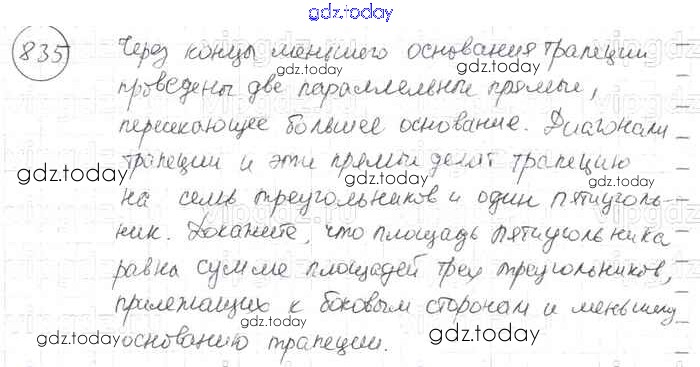 gdz.today
835 Через концы меньшего основания трапеции
gdz.today gdz.today
проведены две параллельные прямые,
пересекающее большее основание. Диагонали
трапеции и эти прямые делят трапецию
gdz.today gdz.today gdz.today
на семь треугольников и один пятиуголь-
ник. Докажите, что площадь пятиугольника
равна сумме площадей трех треугольников,
прилежащих к боковым сторонам и меньшему
gdz.today gdz.today gdz.today
основанию трапеции.